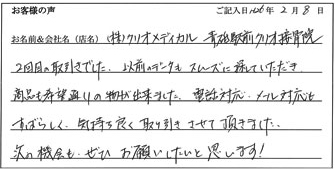 お客様の声 ご記入日2016年 2月 8日
お名前&会社名(店名) (株)クリオメディカル 青砥駅前クリオ接骨院
2回目の取引きでした。以前のデータもスムーズに探していただき
商品も希望通りの物が出来ました。電話対応・メール対応も
すばらしく、気持ち良く取り引きさせて頂きました。
次の機会も、ぜひお願いしたいと思います!